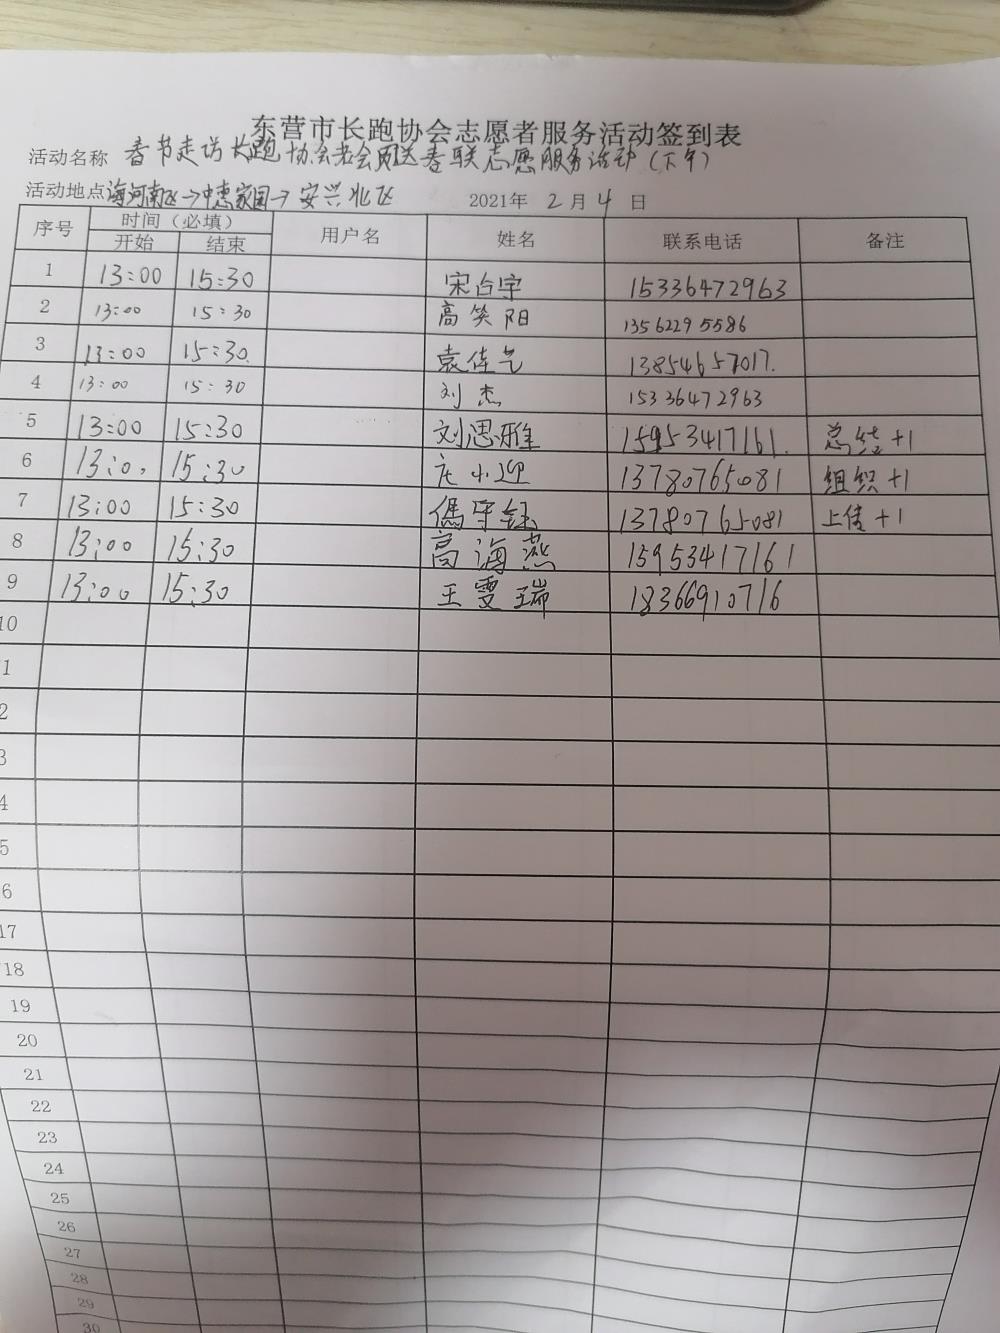 东营市长跑协会志愿者服务活动签到表
活动名称 春节走访长跑协会老会员送春联志愿服务活动(下午)
活动地点 海河南区→中惠家园→安兴北区 2021年 2 月 4 日
序号 时间(必填) 用户名 姓名 联系电话 备注
开始 结束
1 13:00 15:30 宋台宇 15336472963
2 13:00 15:30 高笑阳 13562295586
3 13:00 15:30 袁佳气 13854657017.
4 13:00 15:30 刘杰 15336472963
5 13:00 15:30 刘思雅 15953417161. 总结+1
6 15:30 小迎 13780765081 组织+1
7 13:00 15:30 13780765081 上传+1
8 13:00 15:30 高海燕 15953417161
9 13:00 15:30 王雯瑞 18366910716
10
1
2
3
4
5
6
17
18
19
20
21
22
23
24
25
26
27
28
29
30